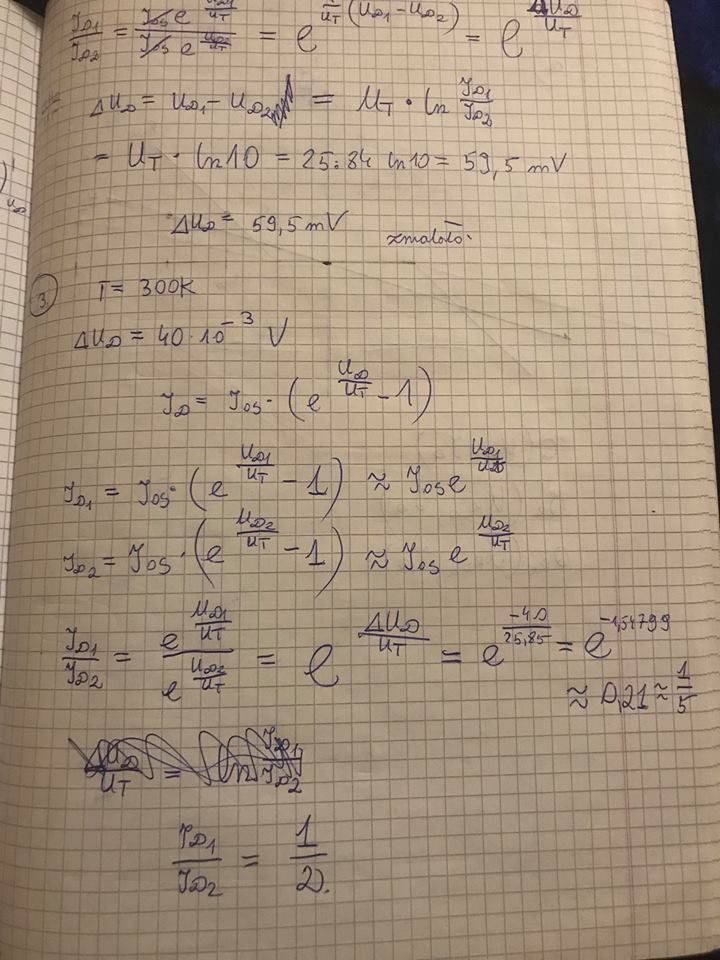 I_D1/I_D2 = I_OS e^(U_D1/U_T) / I_OS e^(U_D2/U_T) = e^(1/U_T (U_D1 - U_D2)) = e^(ΔU_D/U_T)
ΔU_D = U_D1 - U_D2 = U_T · ln I_D1/I_D2
= U_T · ln10 = 25.84 ln10 = 59,5 mV
ΔU_D = 59,5 mV
3. T = 300K
ΔU_D = 40·10^-3 V
I_D = I_OS · (e^(U_D/U_T) - 1)
I_D1 = I_OS · (e^(U_D1/U_T) - 1) ≈ I_OS e^(U_D1/U_T)
I_D2 = I_OS · (e^(U_D2/U_T) - 1) ≈ I_OS e^(U_D2/U_T)
I_D1/I_D2 = e^(U_D1/U_T) / e^(U_D2/U_T) = e^(ΔU_D/U_T) = e^(-40/25,85) = e^(-1,54799)
≈ 0,21 ≈ 1/5
I_D1/I_D2 = 1/2.